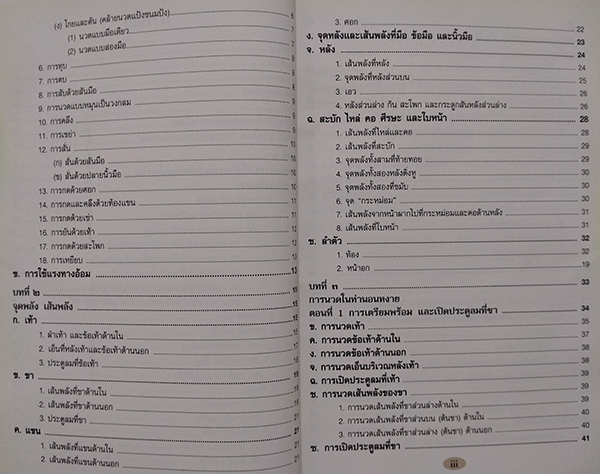 (ง) โกยและดัน (คล้ายนวดแป้งขนมปัง)
(1) นวดแบบมือเดียว
(2) นวดแบบสองมือ
6. การทุบ
7. การตบ
8. การสับด้วยสันมือ
9. การนวดแบบหมุนเป็นวงกลม
10. การคลึง
11. การเขย่า
12. การสั่น
(ก) สั่นด้วยสันมือ
(ข) สั่นด้วยปลายนิ้วมือ
13. การกดด้วยศอก
14. การกดและคลึงด้วยท้องแขน
15. การกดด้วยเข่า
16. การยันด้วยเท้า
17. การกดด้วยสะโพก
18. การเหยียบ
ข. การใช้แรงทางอ้อม 13
บทที่ ๒
จุดพลัง เส้นพลัง
ก. เท้า
1. ฝ่าเท้า และข้อเท้าด้านใน
2. เอ็นที่หลังเท้าและข้อเท้าด้านนอก
3. ประตูลมที่ข้อเท้า
ข. ขา
1. เส้นพลังที่ขาด้านใน
2. เส้นพลังที่ขาด้านนอก
3. ประตูลมที่ขา
ค. แขน
1. เส้นพลังที่แขนด้านใน
2. เส้นพลังที่แขนด้านนอก
3. ศอก 22
ง. จุดหลังและเส้นพลังที่มือ ข้อมือ และนิ้วมือ 23
จ. หลัง 24
1. เส้นพลังที่หลัง 24
2. จุดพลังที่หลังส่วนบน 25
3. เอว 26
4. หลังส่วนล่าง ก้น สะโพก และกระดูกสันหลังส่วนล่าง 26
ฉ. สะบัก ไหล่ คอ ศีรษะ และใบหน้า 28
1. เส้นพลังที่ไหล่และคอ 28
2. เส้นพลังที่สะบัก 29
3. จุดพลังทั้งสามที่ท้ายทอย 29
4. จุดพลังทั้งสองหลังติ่งหู 30
5. จุดพลังทั้งสองที่ขมับ 30
6. จุด "กระหม่อม" 30
7. เส้นพลังจากหน้าผากไปที่กระหม่อมและคอด้านหลัง 31
8. เส้นพลังที่ใบหน้า 31
ช. ลำตัว 32
1. ท้อง 32
2. หน้าอก 19
บทที่ ๓ 33
การนวดในท่านอนหงาย
ตอนที่ 1 การเตรียมพร้อม และเปิดประตูลมที่ขา 34
ข. การนวดเท้า 35
ค. การนวดข้อเท้าด้านใน 37
ง. การนวดข้อเท้าด้านนอก 38
จ. การนวดเอ็นบริเวณหลังเท้า 38
ฉ. การเปิดประตูลมที่เท้า 39
ช. การนวดเส้นพลังของขา 39
1. การนวดเส้นพลังที่ขาส่วนล่างด้านใน 39
2. การนวดเส้นพลังที่ขาส่วนบน (ต้นขา) ด้านใน 40
3. การนวดเส้นพลังที่ขาส่วนล่าง (ต้นขา) ด้านนอก 40
ซ. การเปิดประตูลมที่ขา 41
iii